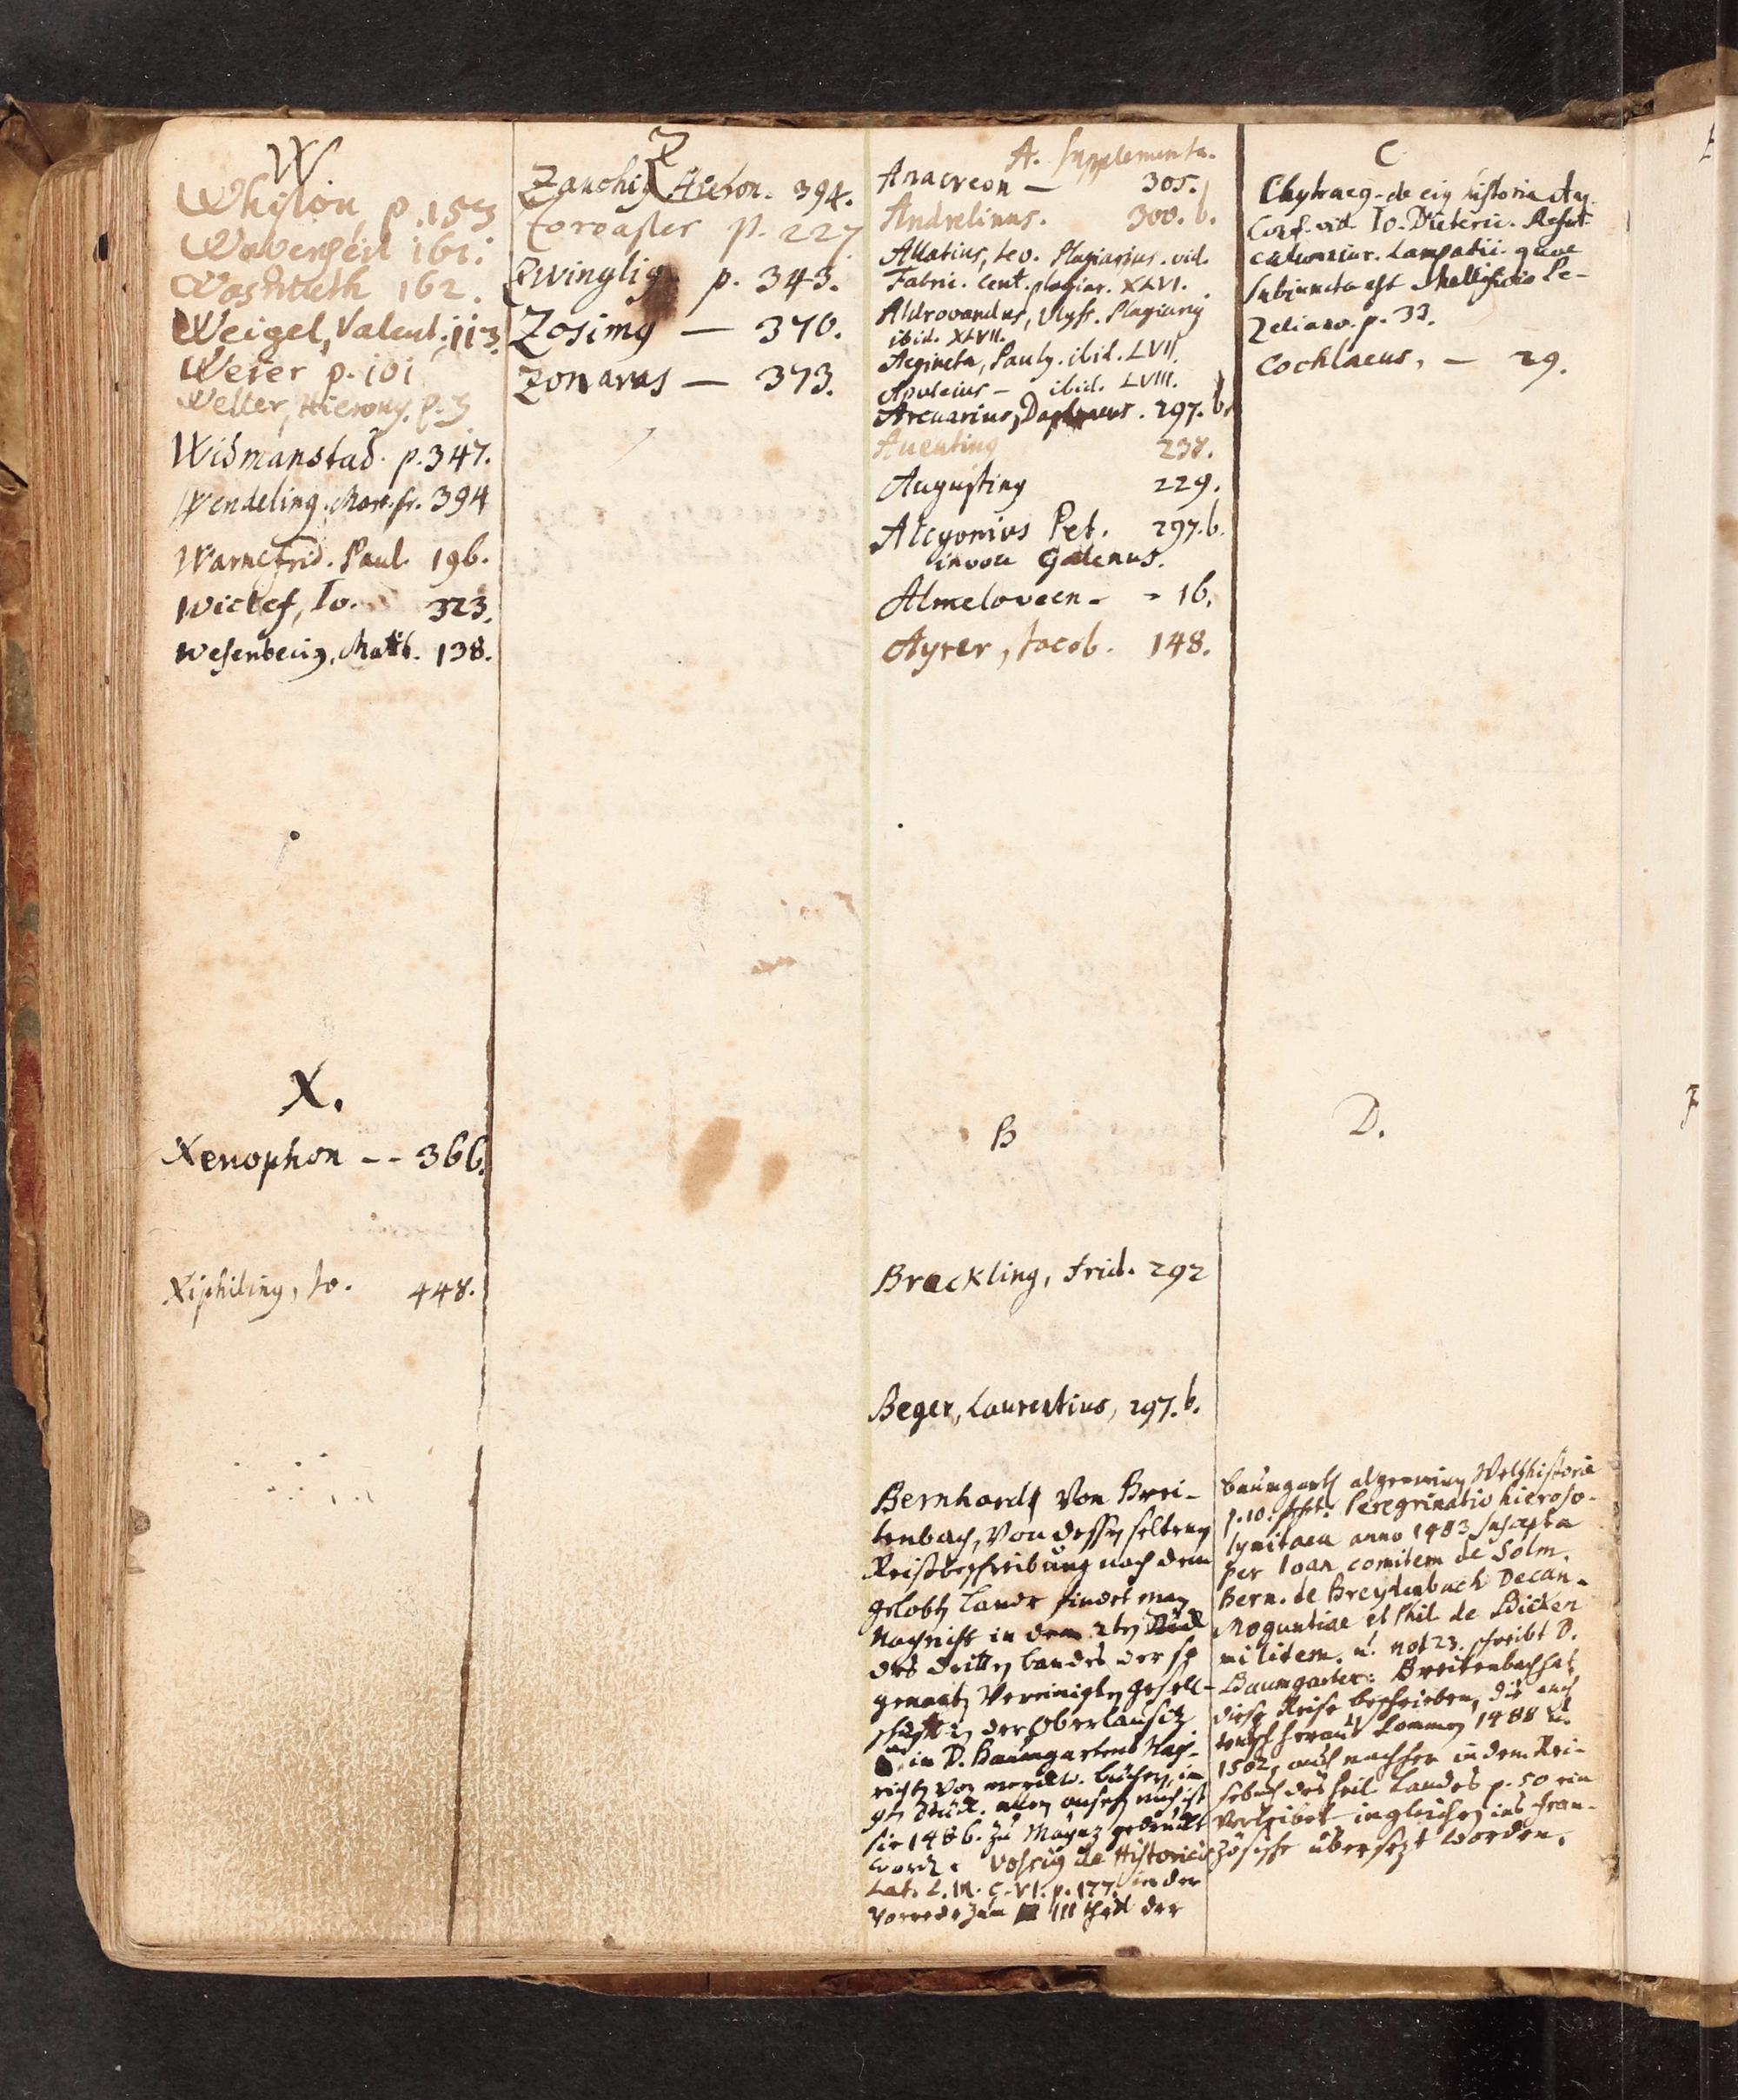 W
Whiston p. 153
161.
162.
Weigel, Valent. 113.
Weier p. 101
Weller, Hierony. p. 3
Widmanstad. p. 347.
Wendeling. Marc. fr. 394
Warnefrid. Paul. 196.
Wiclef, Io. 323.
Wesenbecig, Matth. 138.
X.
Xenophon -- 366.
Xiphiling, Io. 448.
Z
Zanchig Hieron. 394.
Zoroaster p. 227
Zwinglig p. 343.
Zosimg — 370.
Zonaras — 373.
A. Supplementa.
Anacreon — 305.
Andrelinus. 300. b.
Allatius, Leo. Plagiarius. vid.
Fabric. Cent. plagiar. XLVI.
Aldrovandus, Ulyss. Plagiarig
ibid. XLVII.
Aegineta, Paulg. ibid. LVII.
Apuleius — ibid. LVIII.
Arcuarius, 297. b.
Aventing 238.
Augusting 229.
Alcyonius Pet. 297. b.
in voce Galenus.
Almeloveen - - 16.
Ayrer, Jacob. 148.
B
Breckling, Frid. 292
Beger, Laurentius, 297. b.
Bernhard von Brei-
tenbach, von dessen seltenen
Reisbeschreibung nach dem
gelobten Lande findet man
Nachricht in dem 2ten Stück
des dritten bandes der so
genannten Vereinigten Gesell-
schafft in der Oberlausitz
in D. Baumgartens Nach-
richten von merckw. büchern, im
Stück. allem ansehen nach ist
sie 1486. zu Maynz gedruckt
word. Vossig de Historicis
Lat. L. III. c. VI. p. 177. in der
Vorrede zum III theil der
C
Chytraeg - de eig historia Aug.
Conf. vid. Io. Dieteric. Refut.
calumniar. Lampadii quae
subiuncta est Pe-
zeliano. p. 33.
Cochlaeus, — 29.
D.
baumgarth algemeinen Welthistorie
p. 10. Peregrinatio hieroso-
lymitana anno 1483 suscepta
per Ioan comitem de Solm.
Bern. de Breydenbach Decan.
Moguntiae et Phil. de Bicken
militem. u. not 23. schreibt D.
Baumgarten: Breitenbach hat
diese Reise beschrieben, die auch
teutsch heraus kommen 1488 u.
1502, auch nachher in dem Rei-
sebuch des heil. Landes p. 50 ein
verleibet ingleichen ins fran-
zösische übersezt worden.